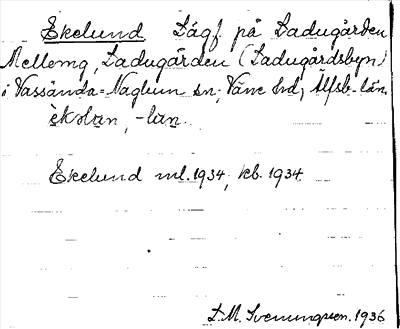 Ekelund Lägf. på Ladugården
Mellemg, Ladugården (Ladugårdsbyn)
i Vassända-Naglum sn, Väne hd, Älfsb. län
èkolan, -lan.
Ekelund ml. 1934, kb. 1934
D.M. Svenungsson. 1936